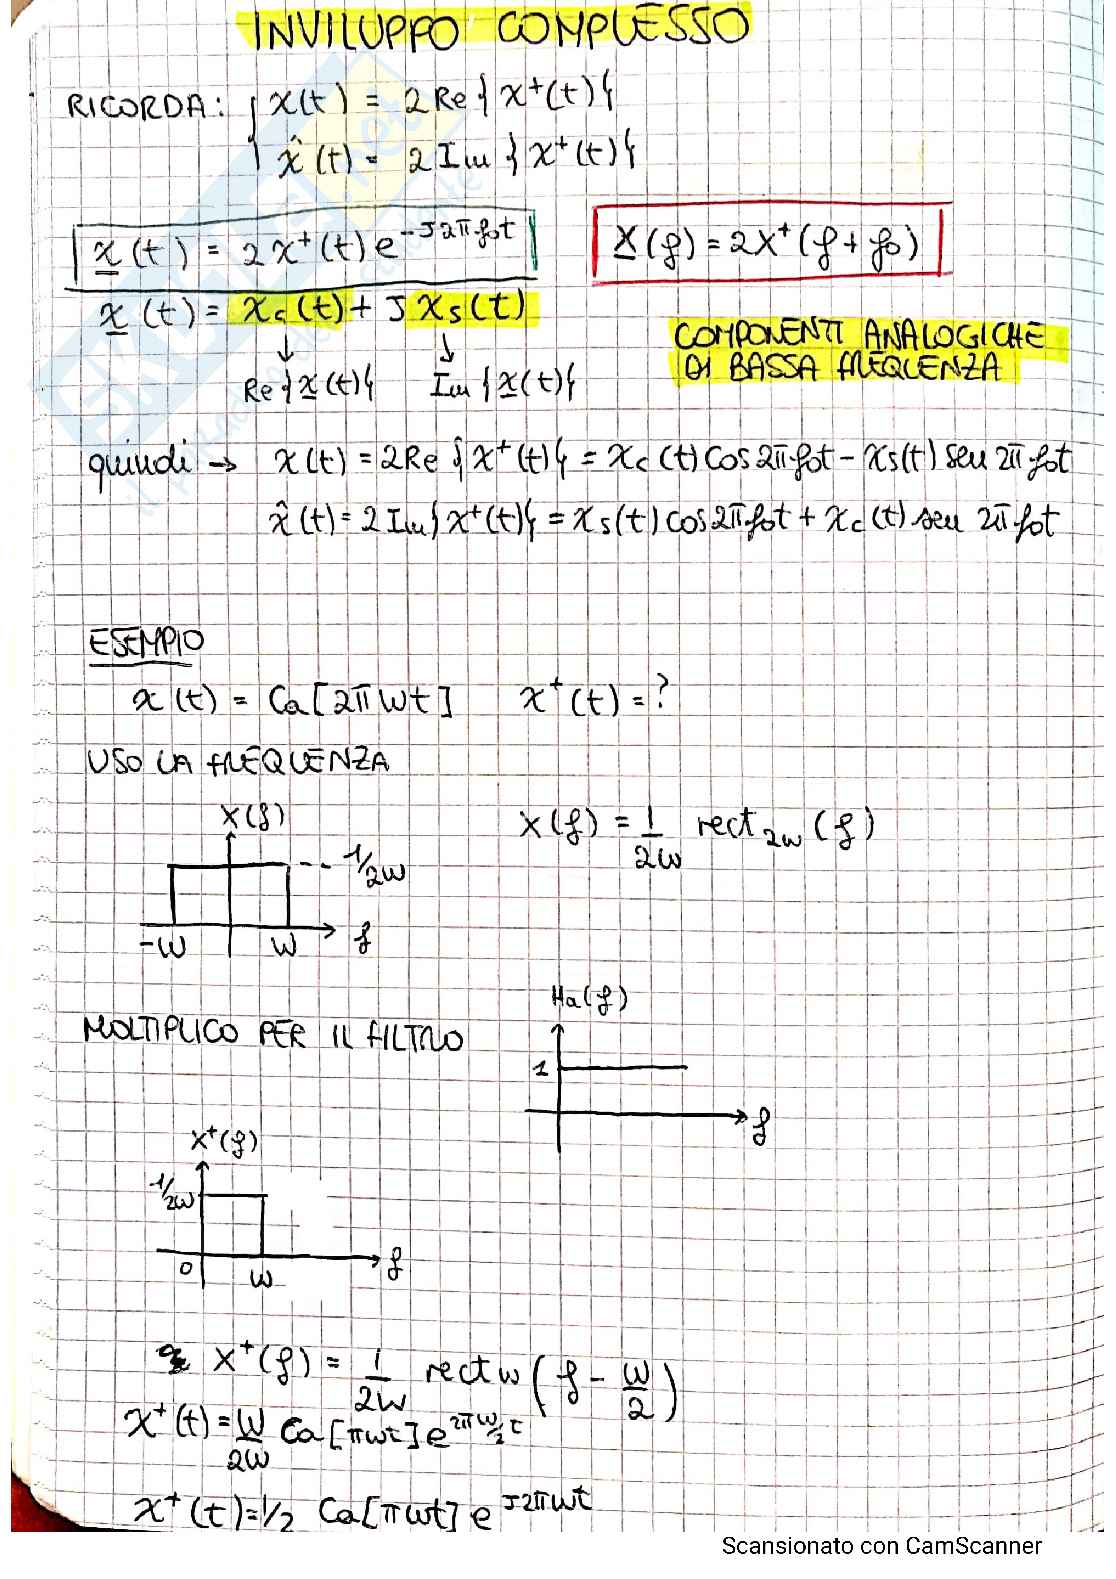 INVILUPPO COMPLESSO
RICORDA: { x(t) = 2Re{x⁺(t)}
x̂(t) = 2Im{x⁺(t)}
x(t) = 2x⁺(t)e^-J2πf₀t
X(f) = 2X⁺(f+f₀)
x(t) = x_c(t) + J x_s(t)
↓ ↓
Re{x(t)} Im{x(t)}
COMPONENTI ANALOGICHE
DI BASSA FREQUENZA
quindi → x(t) = 2Re{x⁺(t)} = x_c(t) cos2πf₀t - x_s(t) sen 2πf₀t
x̂(t) = 2Im{x⁺(t)} = x_s(t) cos2πf₀t + x_c(t) sen 2πf₀t
ESEMPIO
x(t) = Ca[2πWt] x⁺(t) = ?
USO LA FREQUENZA
X(f)
1/2W
-W W f
X(f) = 1/2W rect_2W(f)
MOLTIPLICO PER IL FILTRO
Ha(f)
1
f
X⁺(f)
1/2W
0 W f
X⁺(f) = 1/2W rect_W(f - W/2)
x⁺(t) = W/2W Ca[πWt] e^2πW/2t
x⁺(t) = 1/2 Ca[πWt] e^J2πWt
Scansionato con CamScanner